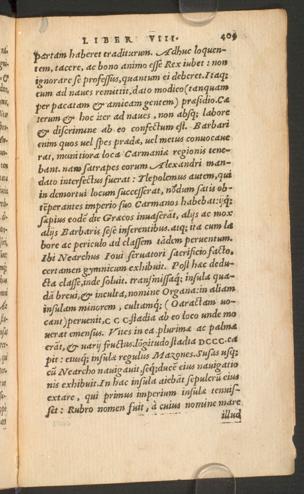 LIBER VIII. 409
partam haberet traditurum. Adhuc loquen-
tem, tacere, ac bono animo esse Rex iubet: non
ignorare se professus, quantum ei deberet. Itaq;
eum ad naues remittit, dato modico (tanquam
per pacatam & amicam gentem) præsidio. Cæ
terum & hoc iter ad naues, non absq; labore
& discrimine ab eo confectum est. Barbari
enim quos uel spes prædæ, uel metus conuocaue
rat, munitiora loca Carmaniæ regionis tene-
bant. nam satrapes eorum Alexandri man-
dato interfectus fuerat: Tlepolemus autem, qui
in demortui locum successerat, nõdum satis ob-
tẽperantes imperio suo Carmanos habebat: ijq;
sæpius eodẽ die Græcos inuaserãt, alijs ac mox
alijs Barbaris sese inferentibus. atq; ita cum la
bore ac periculo ad classem tãdem peruentum.
Ibi Nearchus Ioui seruatori sacrificio facto,
certamen gymnicum exhibuit. Post hæc dedu-
cta classe, inde soluit. transmissaq; insula quæ-
dã breui, & inculta, nomine Organa: in aliam
insulam minorem, cultamq; (Oaractam uo-
cant) peruenit, CCC. stadia ab eo loco unde mo
uerat emensus. Vites in ea plurimæ ac palmæ
erãt, & uarij fructus. lõgitudo stadia DCCC. ca
pit: eiusq; insulæ regulus Mazones. Susas usq;
cũ Nearcho nauigauit, seq; ducẽ eius nauigatio
nis exhibuit. In hac insula aiebãt sepulcrũ eius
extare, qui primus imperium insulæ tenuis-
set: Rubro nomen fuit, à cuius nomine mare
illud